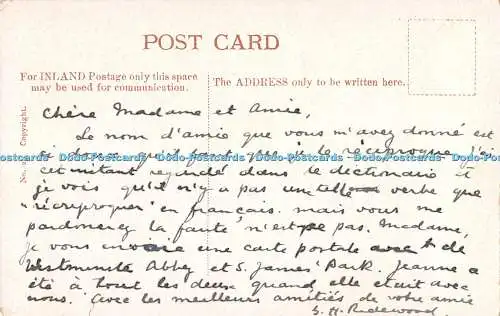 POST CARD
For INLAND Postage only this space
may be used for communication.
The ADDRESS only to be written here.
No. Copyright.
Chère Madame et Amie,
Le nom d'amie que vous m'avez donné est
si doux qu'il faut que je le réciproque. J'ai
Dodo-Postcards Dodo-Postcards Dodo-Postcards Dodo-Postcards
cet instant regardé dans le dictionaire et
je vois qu'il n'y a pas un telle verbe que
"réciproquer" en français. mais vous me
pardonerez la faute n'est pe pas. Madame,
je vous envoie une carte postale de
Westminste Abbey et S. James' Park. Jeanne a
été à tout les deux quand elle était avec
nous. Avec les meilleurs amitiés de votre amie
S. H. Ridewood.